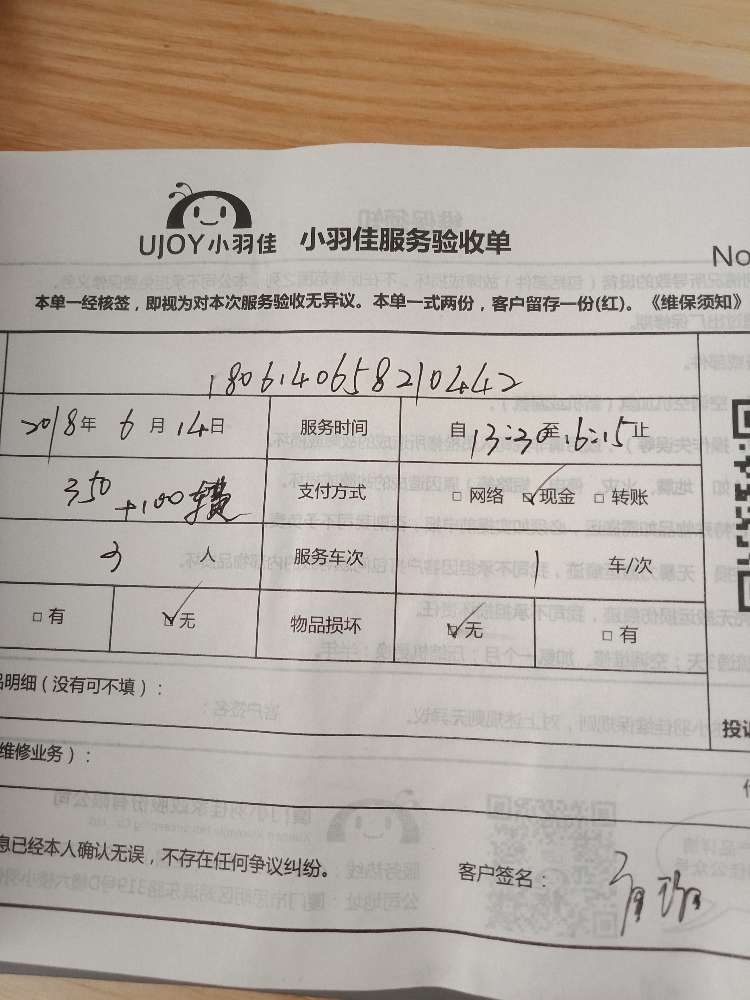 UJOY小羽佳 小羽佳服务验收单
No
本单一经核签，即视为对本次服务验收无异议。本单一式两份，客户留存一份(红)。《维保须知》
1806140658210442
2018年 6月 14日 服务时间 自 13:30 至 16:15 止
350+100 支付方式 □ 网络 ☑ 现金 □ 转账
3 人 服务车次 1 车/次
□ 有 ☑ 无 物品损坏 ☑ 无 □ 有
品明细（没有可不填）：
投诉
维修业务）：
息已经本人确认无误，不存在任何争议纠纷。 客户签名：